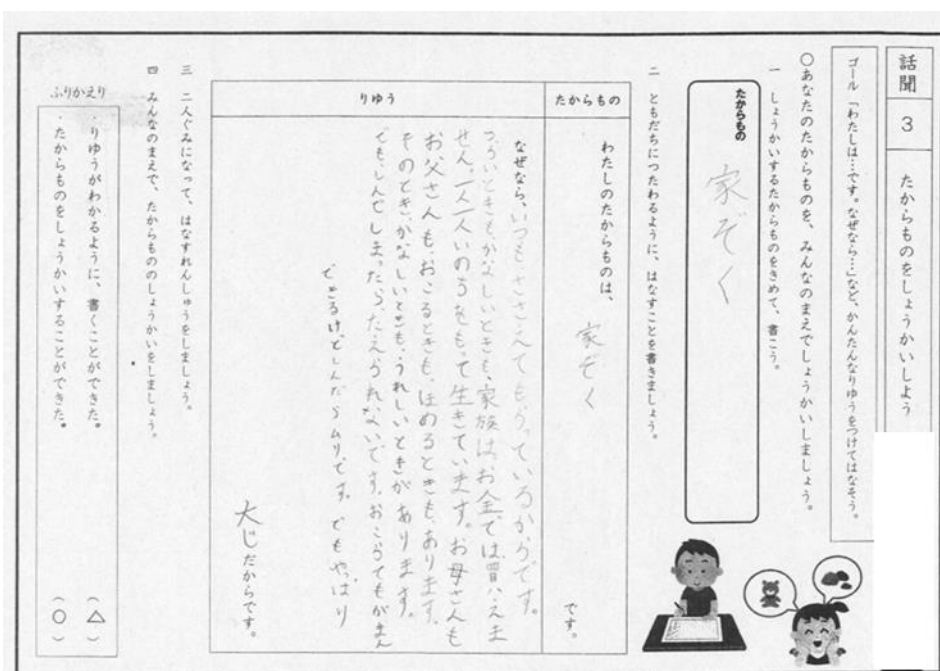 話聞
3
たからものをしょうかいしよう
ゴール 「わたしは…です。なぜなら…」など、かんたんなりゆうをつけてはなそう。
○あなたのたからものを、みんなのまえでしょうかいしましょう。
一 しょうかいするたからものをきめて、書こう。
たからもの
家ぞく
二 ともだちにつたわるように、はなすことを書きましょう。
たからもの
わたしのたからものは、
家ぞく
です。
りゆう
なぜなら、いつもささえてもらっているからです。
つらいときも、かなしいときも、家族はお金では買えま
せん。一人一人いのちをもって生きています。お母さんも
お父さんも、おこるときも、ほめるときも、あります。
そのとき、かなしいときも、うれしいときがあります。
でも、しんでしまったら、たえられないです。おこってもがまん
できるけど、しんだらムリです。でもやっぱり
大じだからです。
三 二人ぐみになって、はなすれんしゅうをしましょう。
四 みんなのまえで、たからもののしょうかいをしましょう。
ふりかえり
・りゆうがわかるように、書くことができた。 (△)
・たからものをしょうかいすることができた。 (○)